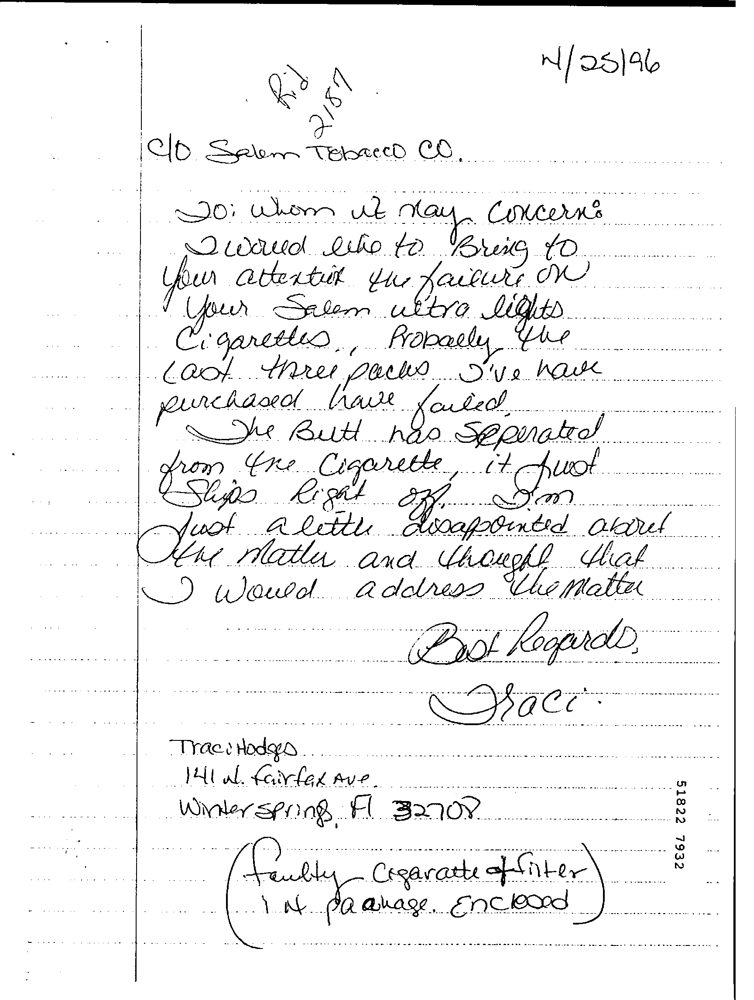 4/25/96
Rd
2187
C/O Salem Tobacco CO.
To: Whom it May Concern:
I would like to Bring to
Your attention the failure on
Your Salem ultra lights
Cigarettes., Probaely the
Last three packs I've have
purchased have failed.
The Butt has Seperated
from the Cigarette, it just
Slips Right off. I'm
Just a little disappointed about
the Matter and thought that
I would address the Matter
Best Regards,
Traci.
Traci Hodges
141 N. Fairfax Ave.
Winter Springs, Fl 32708
(faulty Cigaratte & filter
IN paakage. Enclosed)
51822 7932